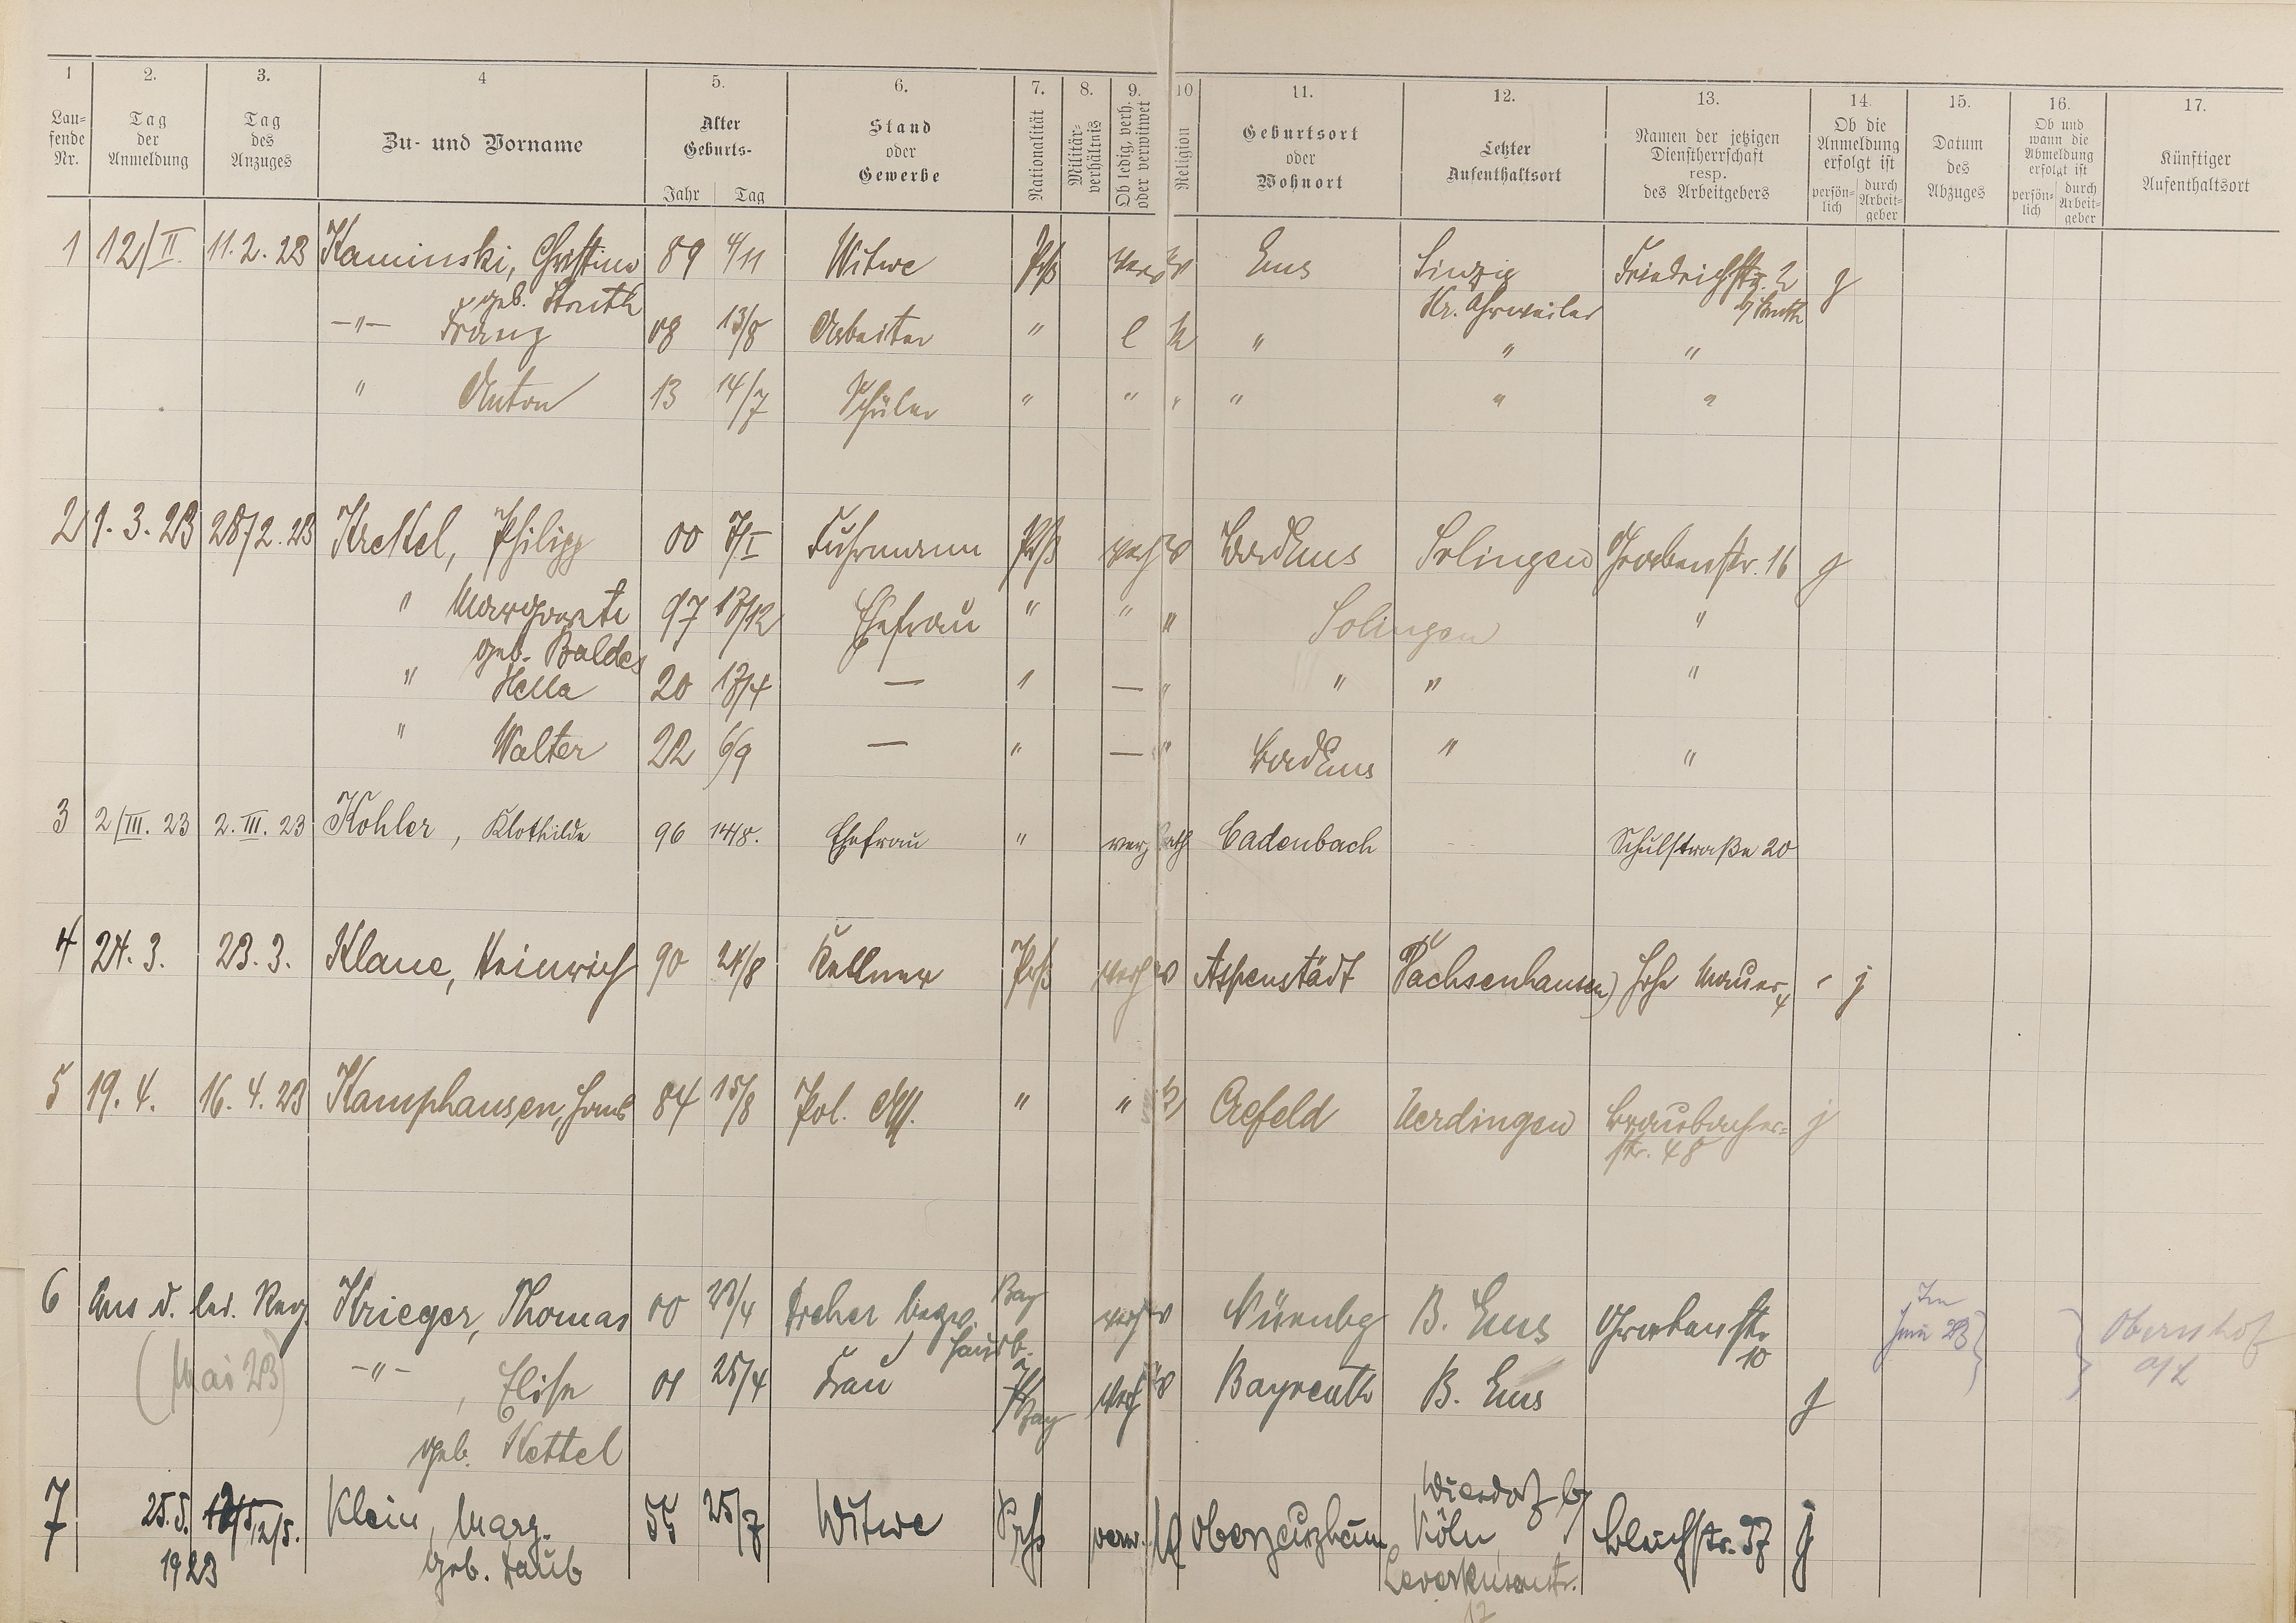 1 2. 3. 4 5. 6. 7. 8. 9. 10 11. 12. 13. 14. 15. 16. 17.
Lau=
fende
Nr.
Tag
der
Anmeldung
Tag
des
Anzuges
Zu- und Vorname
Alter
Geburts-
Jahr Tag
Stand
oder
Gewerbe
Nationalität
Militär-
verhältnis
Ob ledig, verh.
oder verwitwet
Religion
Geburtsort
oder
Wohnort
Letzter
Aufenthaltsort
Namen der jetzigen
Dienstherrschaft
resp.
des Arbeitgebers
Ob die
Anmeldung
erfolgt ist
persön=
lich
durch
Arbeit=
geber
Datum
des
Abzuges
Ob und
wann die
Abmeldung
erfolgt ist
persön=
lich
durch
Arbeit=
geber
Künftiger
Aufenthaltsort
1 12/II. 11.2.23 Kaminski, Christine 89 4/11 Witwe Prß Ems Sinzig Friedrichstr. 2 j
geb. Struth Kr. Ahrweiler b/ Struth
-"- Franz 08 13/8 Arbeiter " l k " " "
" Anton 13 14/7 Schüler " " " " " "
2 1.3.23 28/2.23 Krettel, Philipp 00 7/I Fuhrmann Prß verh Bad Ems Solingen Grabenstr. 16 j
" Margarete 97 18/12 Ehefrau " " " Solingen "
geb. Baldes
" Hella 20 18/4 — " — " " " "
" Walter 22 6/9 — " — " Bad Ems " "
3 2/III.23 2.III.23 Kohler, Klothilde 96 14/8. Ehefrau " verh. kath Cadenbach Schulstraße 20
4 24.3. 23.3. Klaue, Heinrich 90 24/8 Kellner Prß verh Aspenstädt Sachsenhausen Hohe Mauer 4 j
5 19.4. 16.4.23 Kamphausen, Hans 84 15/8 Pol. " " k Crefeld Uerdingen Braubacher=
str. 48 j
6 Aus d. Reg. Krieger, Thomas 00 23/4 Dreher bezw. Bay verh Nürnbg B. Ems Grabenstr. Im
Hausb. 10 Juni 23 Obernhof
(Mai 23) -"- , Elise 01 25/4 Frau Bay verh Bayreuth B. Ems j a/L
geb. Kettel
7 25.5. 12/5. Klein, Marg. 55 25/7 Witwe Prß verw. Oberzeuzheim Wiesdorf b/
1923 geb. Taub Köln Bleichstr. 37 j
Leverkusenstr.
17